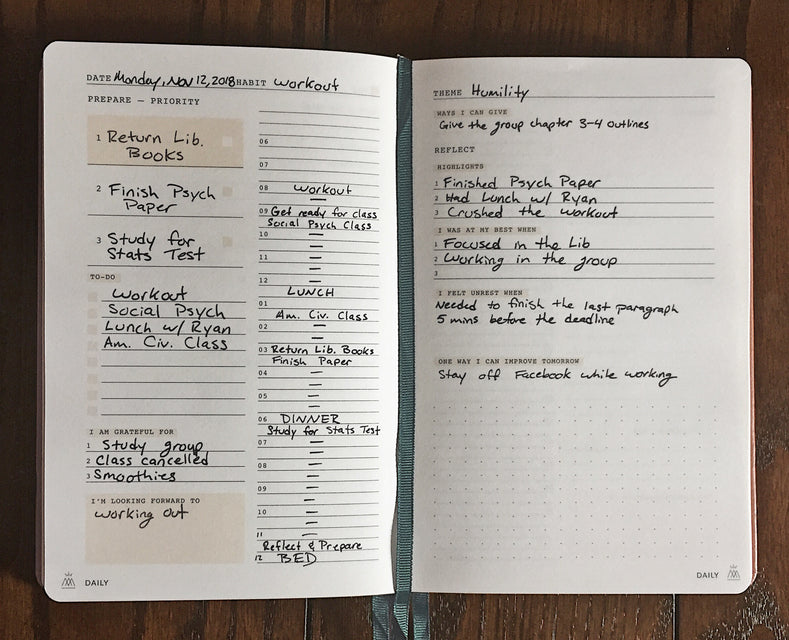 DATE Monday, Nov 12, 2018 HABIT Workout
PREPARE — PRIORITY
1 Return Lib.
Books
2 Finish Psych
Paper
3 Study for
Stats Test
TO-DO
Workout
Social Psych
Lunch w/ Ryan
Am. Civ. Class
I AM GRATEFUL FOR
1 Study group
2 Class cancelled
3 Smoothies
I'M LOOKING FORWARD TO
Working out
06
07
08 Workout
—
09 Get ready for class
Social Psych Class
10 —
—
11 —
—
12 —
LUNCH
01
Am. Civ. Class
02 —
—
03 Return Lib. Books
Finish Paper
04 —
—
05 —
—
06 DINNER
Study for Stats Test
07 —
—
08 —
—
09 —
—
10 —
—
11 —
Reflect & Prepare
12 BED
DAILY
THEME Humility
WAYS I CAN GIVE
Give the group chapter 3-4 outlines
REFLECT
HIGHLIGHTS
1 Finished Psych Paper
2 Had Lunch w/ Ryan
3 Crushed the workout
I WAS AT MY BEST WHEN
1 Focused in the Lib
2 Working in the group
3
I FELT UNREST WHEN
Needed to finish the last paragraph
5 mins before the deadline
ONE WAY I CAN IMPROVE TOMORROW
Stay off Facebook while working
DAILY